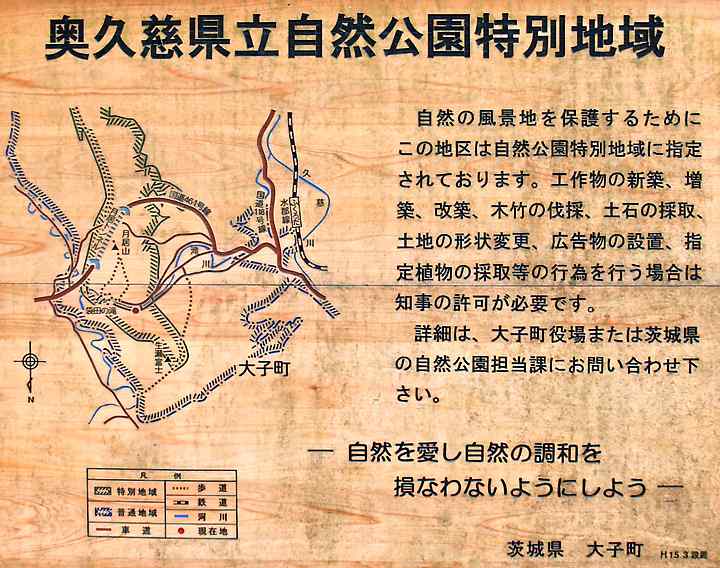 奥久慈県立自然公園特別地域
自然の風景地を保護するために
この地区は自然公園特別地域に指定
されております。工作物の新築、増
築、改築、木竹の伐採、土石の採取、
土地の形状変更、広告物の設置、指
定植物の採取等の行為を行う場合は
知事の許可が必要です。
詳細は、大子町役場または茨城県
の自然公園担当課にお問い合わせ下
さい。
― 自然を愛し自然の調和を
損なわないようにしよう ―
茨城県 大子町 H15.3設置
国道461号線
月居山
滝川
国道118号線
水郡線
ふくろだ
久慈川
袋田の滝
生瀬富士
大子町
N
凡例
特別地域 歩道
普通地域 鉄道
車道 河川
現在地